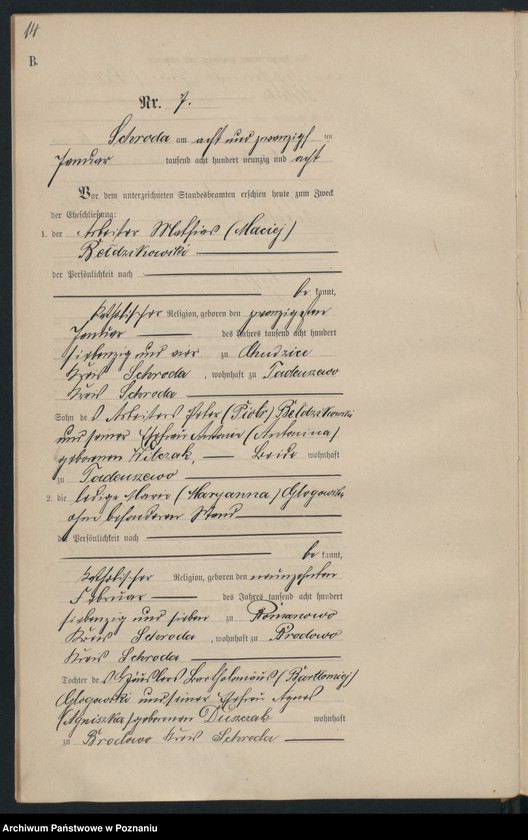 14
B.
Nr. 7.
Schroda am acht und zwanzigsten
Januar tausend acht hundert neunzig und acht
Vor dem unterzeichneten Standesbeamten erschien heute zum Zweck
der Eheschließung:
1. der Arbeiter Mathias (Maciej)
Bełdzikowski
der Persönlichkeit nach
be kannt,
katholischer Religion, geboren den zwanzigsten
Januar des Jahres tausend acht hundert
siebenzig und vier zu
Kreis Schroda, wohnhaft zu Tadeuszewo
Kreis Schroda
Sohn des Arbeiters Peter (Piotr) Bełdzikowski
und seiner Ehefrau Antonie (Antonina)
geborenen Wilczak, Beide wohnhaft
zu Tadeuszewo
2. die ledige Marie (Maryanna) Glogowska
ohne besonderen Stand
der Persönlichkeit nach
be kannt,
katholischer Religion, geboren den neunzehnten
Februar des Jahres tausend acht hundert
siebenzig und sieben zu Romanowo
Kreis Schroda, wohnhaft zu Brodowo
Kreis Schroda
Tochter des Häuslers Bartholomäus (Bartłomiej)
Glogowski und seiner Ehefrau Agnes
(Agniszka) geborenen Duszczak wohnhaft
zu Brodowo Kreis Schroda
Archiwum Państwowe w Poznaniu